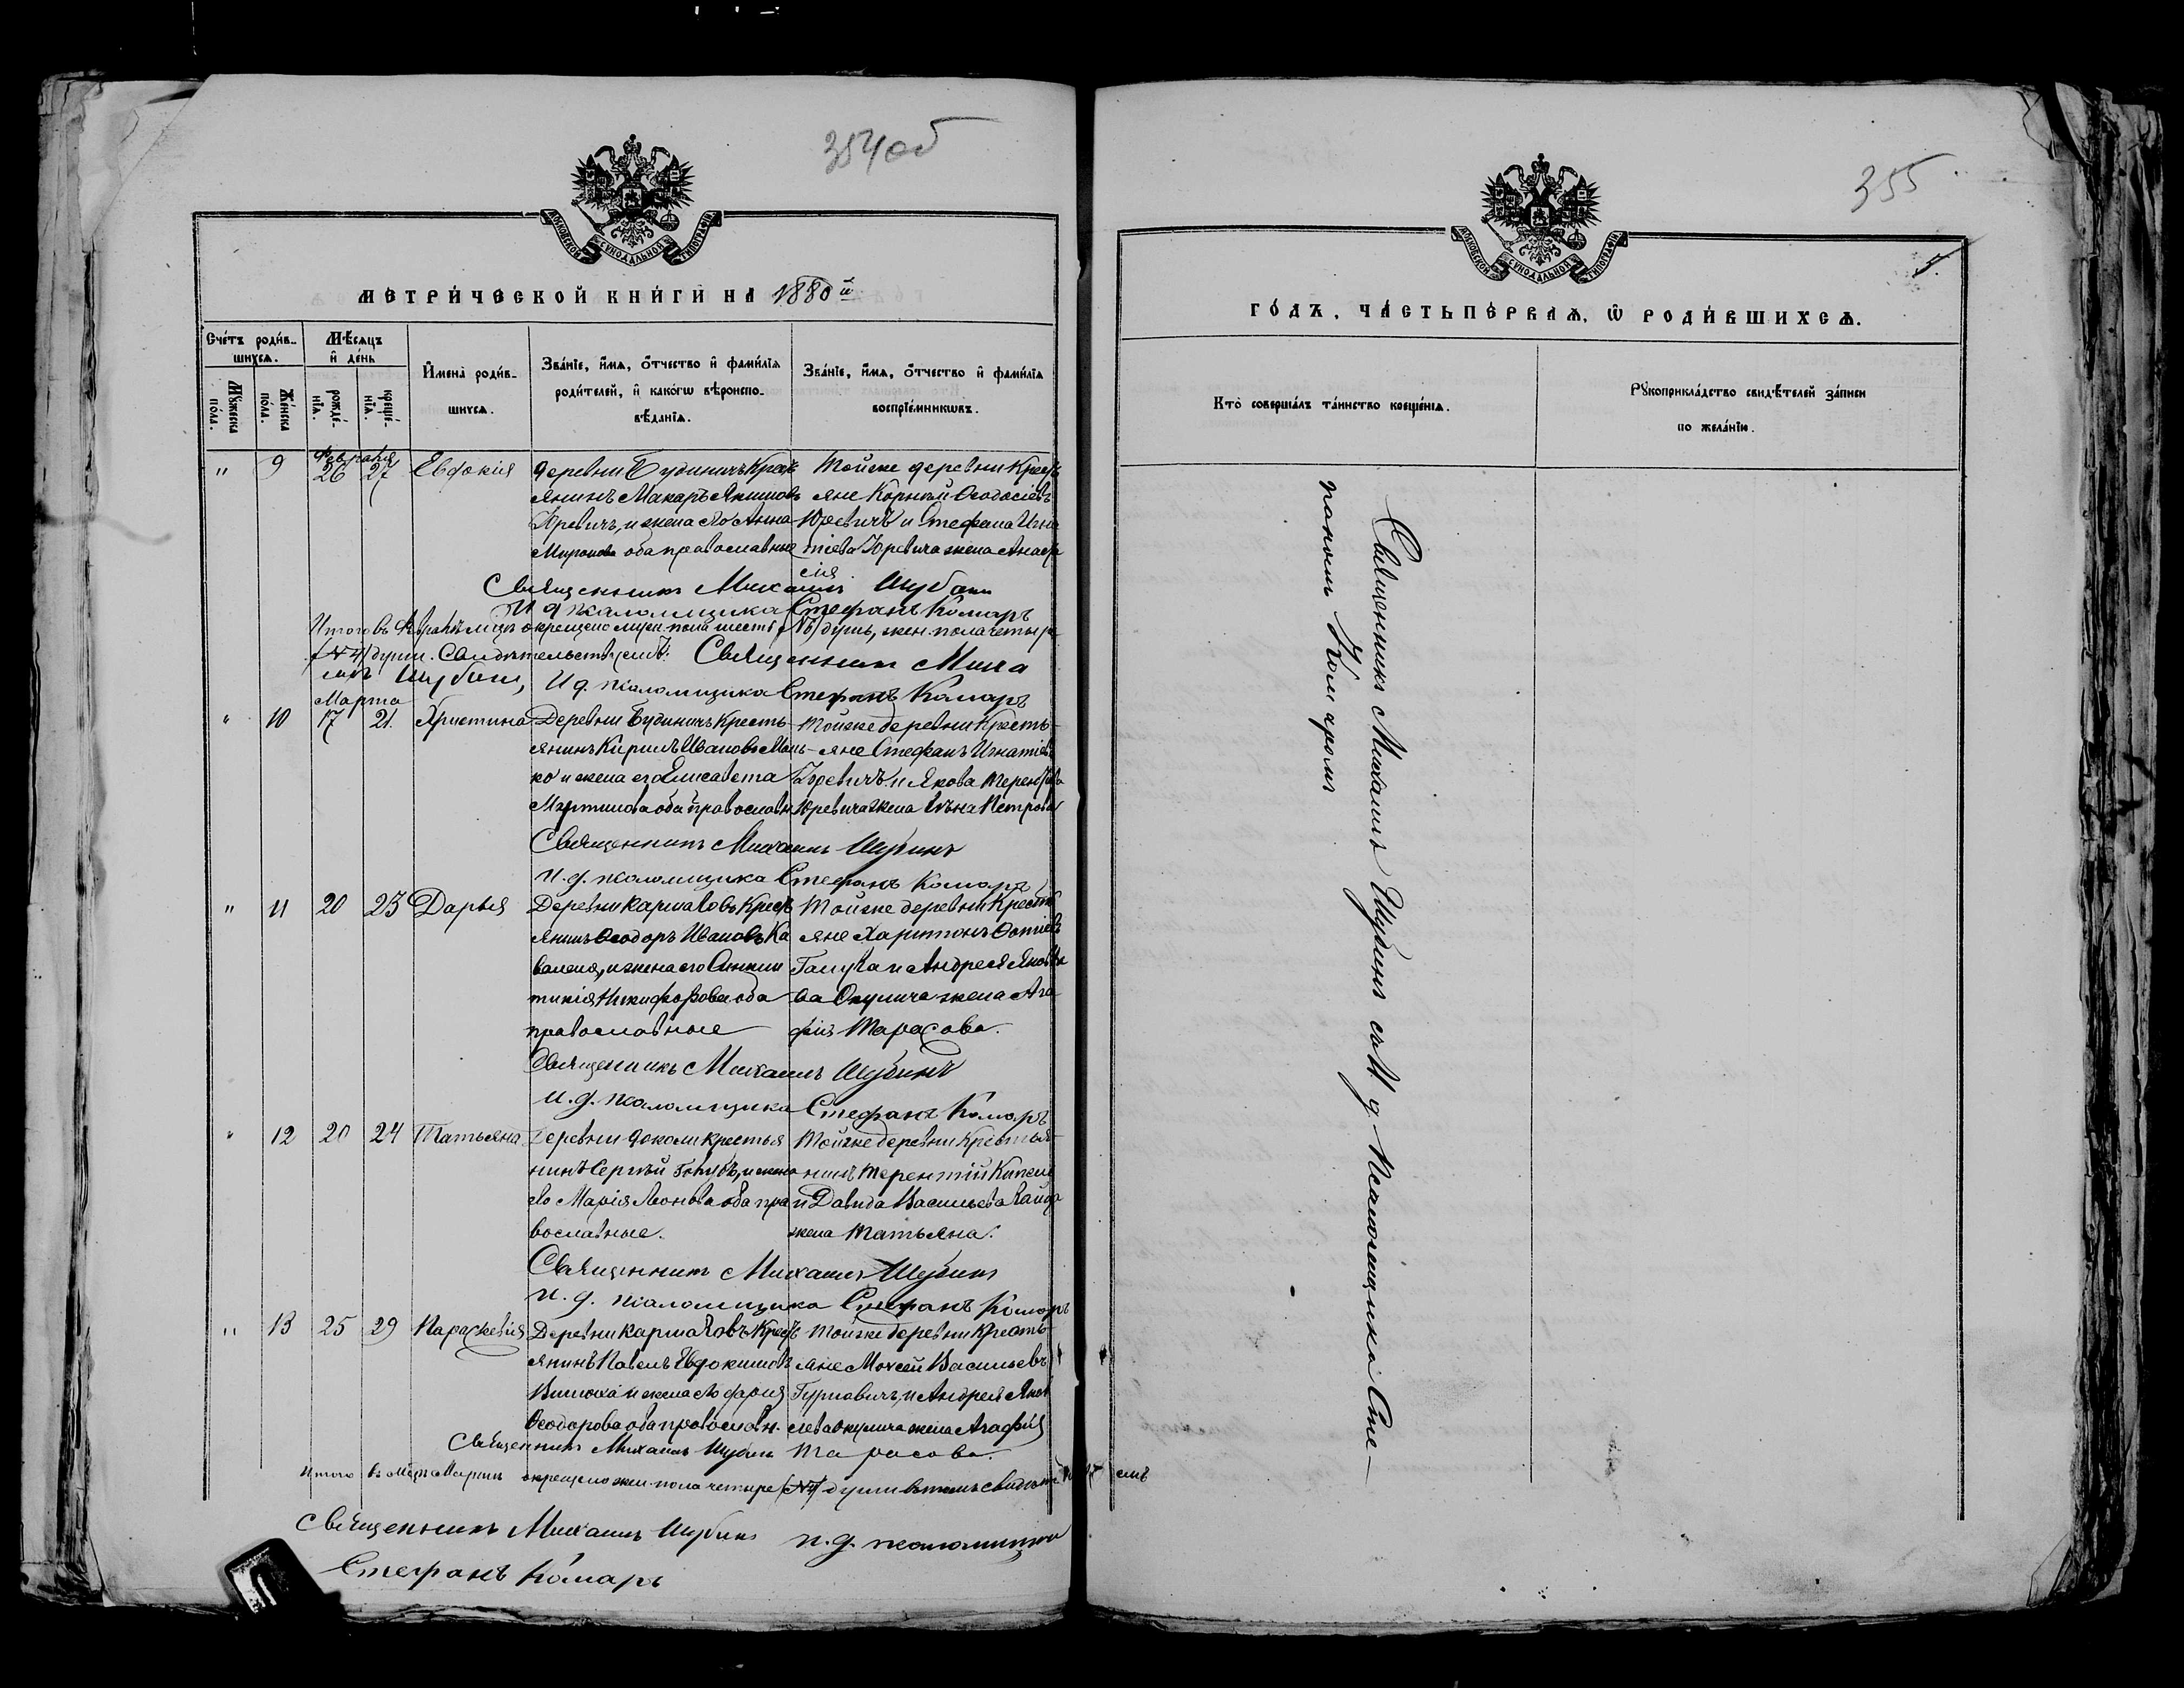 354об
МОСКОВСКОЙ СѴНОДАЛЬНОЙ ТИПОГРАФІИ
МЕТРИ́ЧЕСКОЙ КНИ́ГИ НА 1880й
Сче́тъ роди́вшихсѧ.
Мѣ́сѧцъ и҆ де́нь
Мꙋ́жеска по́ла.
Же́нска по́ла.
рожде́нїѧ.
креще́нїѧ.
И҆мена̀ роди́вшихсѧ.
Зва́нїе, и҆́мѧ, ѻ҆́тчество и҆ фами́лїѧ
роди́телей, и҆ како́гѡ вѣроиспо-
вѣ́данїѧ.
Зва́нїе, и҆́мѧ, ѻ҆́тчество и҆ фами́лїѧ
воспрїе́мникѡвъ.
Февраля
" 9 26 27 Евдокія
Деревни Будиничъ Крест
янинъ Макаръ Якимовъ
Юревичъ, и жена его Анна
Миронова оба православные
Тойже деревни Крест
яне Корнѣй Ѳеодосіевъ
Юревичъ и Стефана Игна
тіева Юревича жена Анаста
сія
Священникъ Михаилъ Шубинъ
И д псаломщика Стефанъ Комаръ
Итого въ Февралѣ мѣсяцѣ окрещено муж. пола шесть (№6) душъ, жен. пола четыре
(№4) души. Свидѣтельствуемъ: Священникъ Миха
илъ Шубинъ, И д. псаломщика Стефанъ Комаръ
Марта
" 10 17 21. Христина
Деревни Будиничъ Кресть-
янинъ Кирилъ Ивановъ
ко и жена его Елисавета
Мартинова оба православн
Тойже деревни Кресть-
яне Стефанъ Игнатіевъ
Юревичъ и Якова Терентіева
Юревича жена Елена Петрова
Священникъ Михаилъ Шубинъ
И. д. псаломщика Стефанъ Комаръ
" 11 20 23 Дарья
Деревни Каршаковъ Крест
янинъ Ѳеодоръ Ивановъ Ка
валеня, и жена его Синкли
тикія Никифорова оба
православные
Тойже деревни Крестья
яне Харитонъ Ѳотіевъ
и Андрея Яковле
ва Окулича жена Ага
фія Тарасова.
Священникъ Михаилъ Шубинъ
И. д. псаломщика Стефанъ Комаръ
" 12 20 24 Татьяна
Деревни Доколи крестья
нинъ Сергѣй Голубъ, и жена
его Марія Леонова оба пра
вославные.
Тойже деревни Крестья-
нинъ Терентій
и Давида Васильева
жена Татьяна.
Священникъ Михаилъ Шубинъ
И. д. псаломщика Стефанъ Комаръ
" 13 25 29 Параскевія
Деревни Каршаковъ Крест
янинъ Павелъ Евдокимовъ
и жена его Дарія
Ѳеодорова оба православн.
Тойже деревни Кресть-
яне Моисей Васильевъ
Гурновичъ, и Андрея Яков
лева Окулича жена Агафія
Тарасова.
Священникъ Михаилъ Шубинъ
Итого въ мѣсяцѣ Мартѣ окрещено жен. пола четыре (№4) души въ томъ свидѣтельствуемъ
Священникъ Михаилъ Шубинъ И. д. псаломщика
Стефанъ Комаръ
355
МОСКОВСКОЙ СѴНОДАЛЬНОЙ ТИПОГРАФІИ
ГО́ДЪ, ЧА́СТЬ ПЕ́РВАѦ, Ѡ҆ РОДИ́ВШИХСѦ.
Кто̀ соверша́лъ та́инство креще́нїѧ.
Рꙋкоприкла́дство свидѣ́телей за́писи
по жела́нїю.
Священникъ Михаилъ Шубинъ съ И д Псаломщика Сте-
паномъ Комаромъ